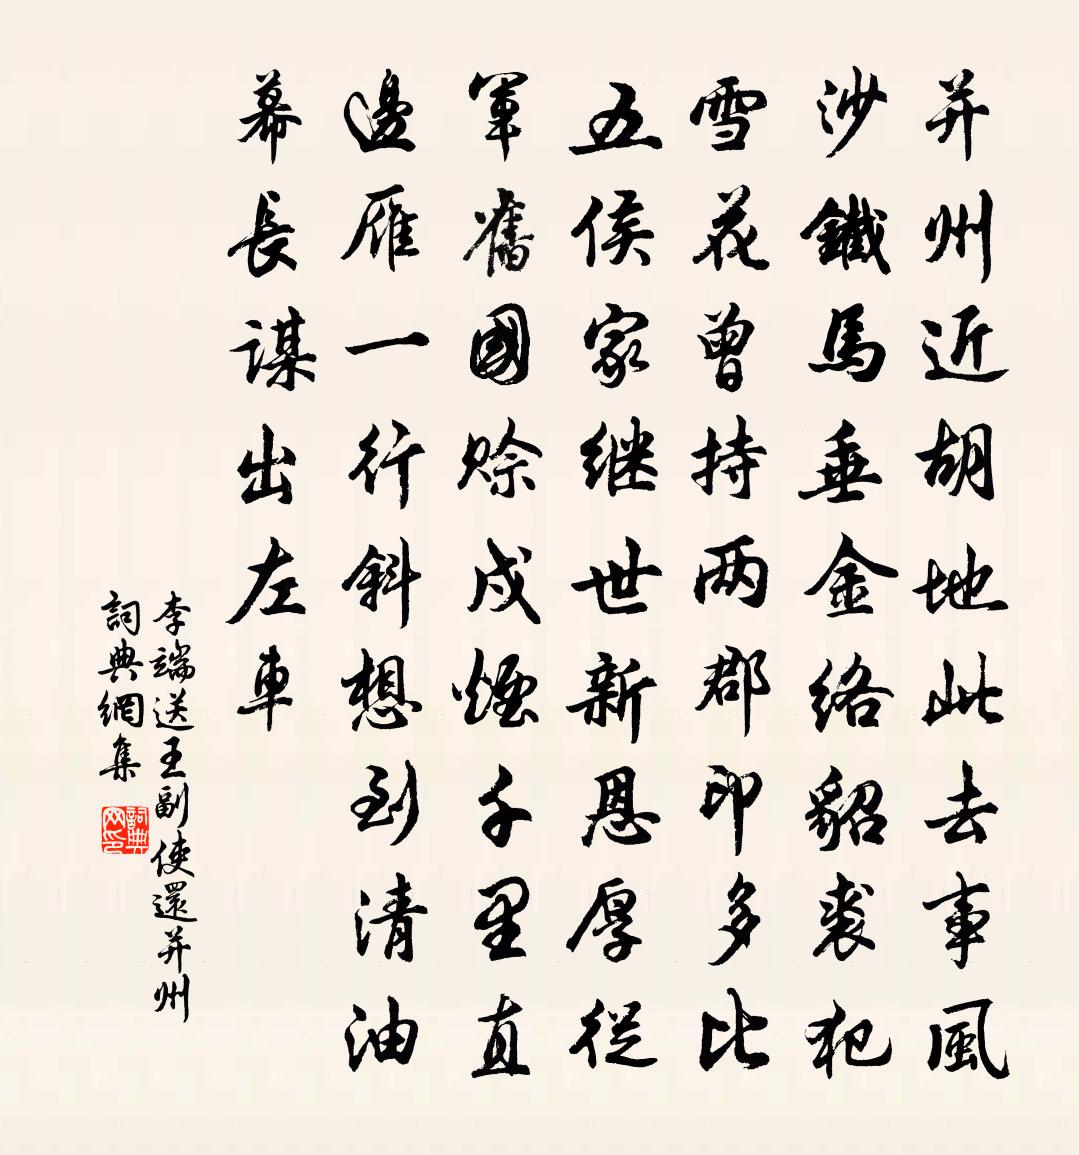 并州近胡地此去事風
沙鐵馬垂金絡貂裘犯
雪花曾持两郡印多比
五侯家继世新恩厚從
軍舊國賒戍煙千里直
邊雁一行斜想到清油
幕長謀出左車
李端送王副使還并州
詞典網集
詞典网印